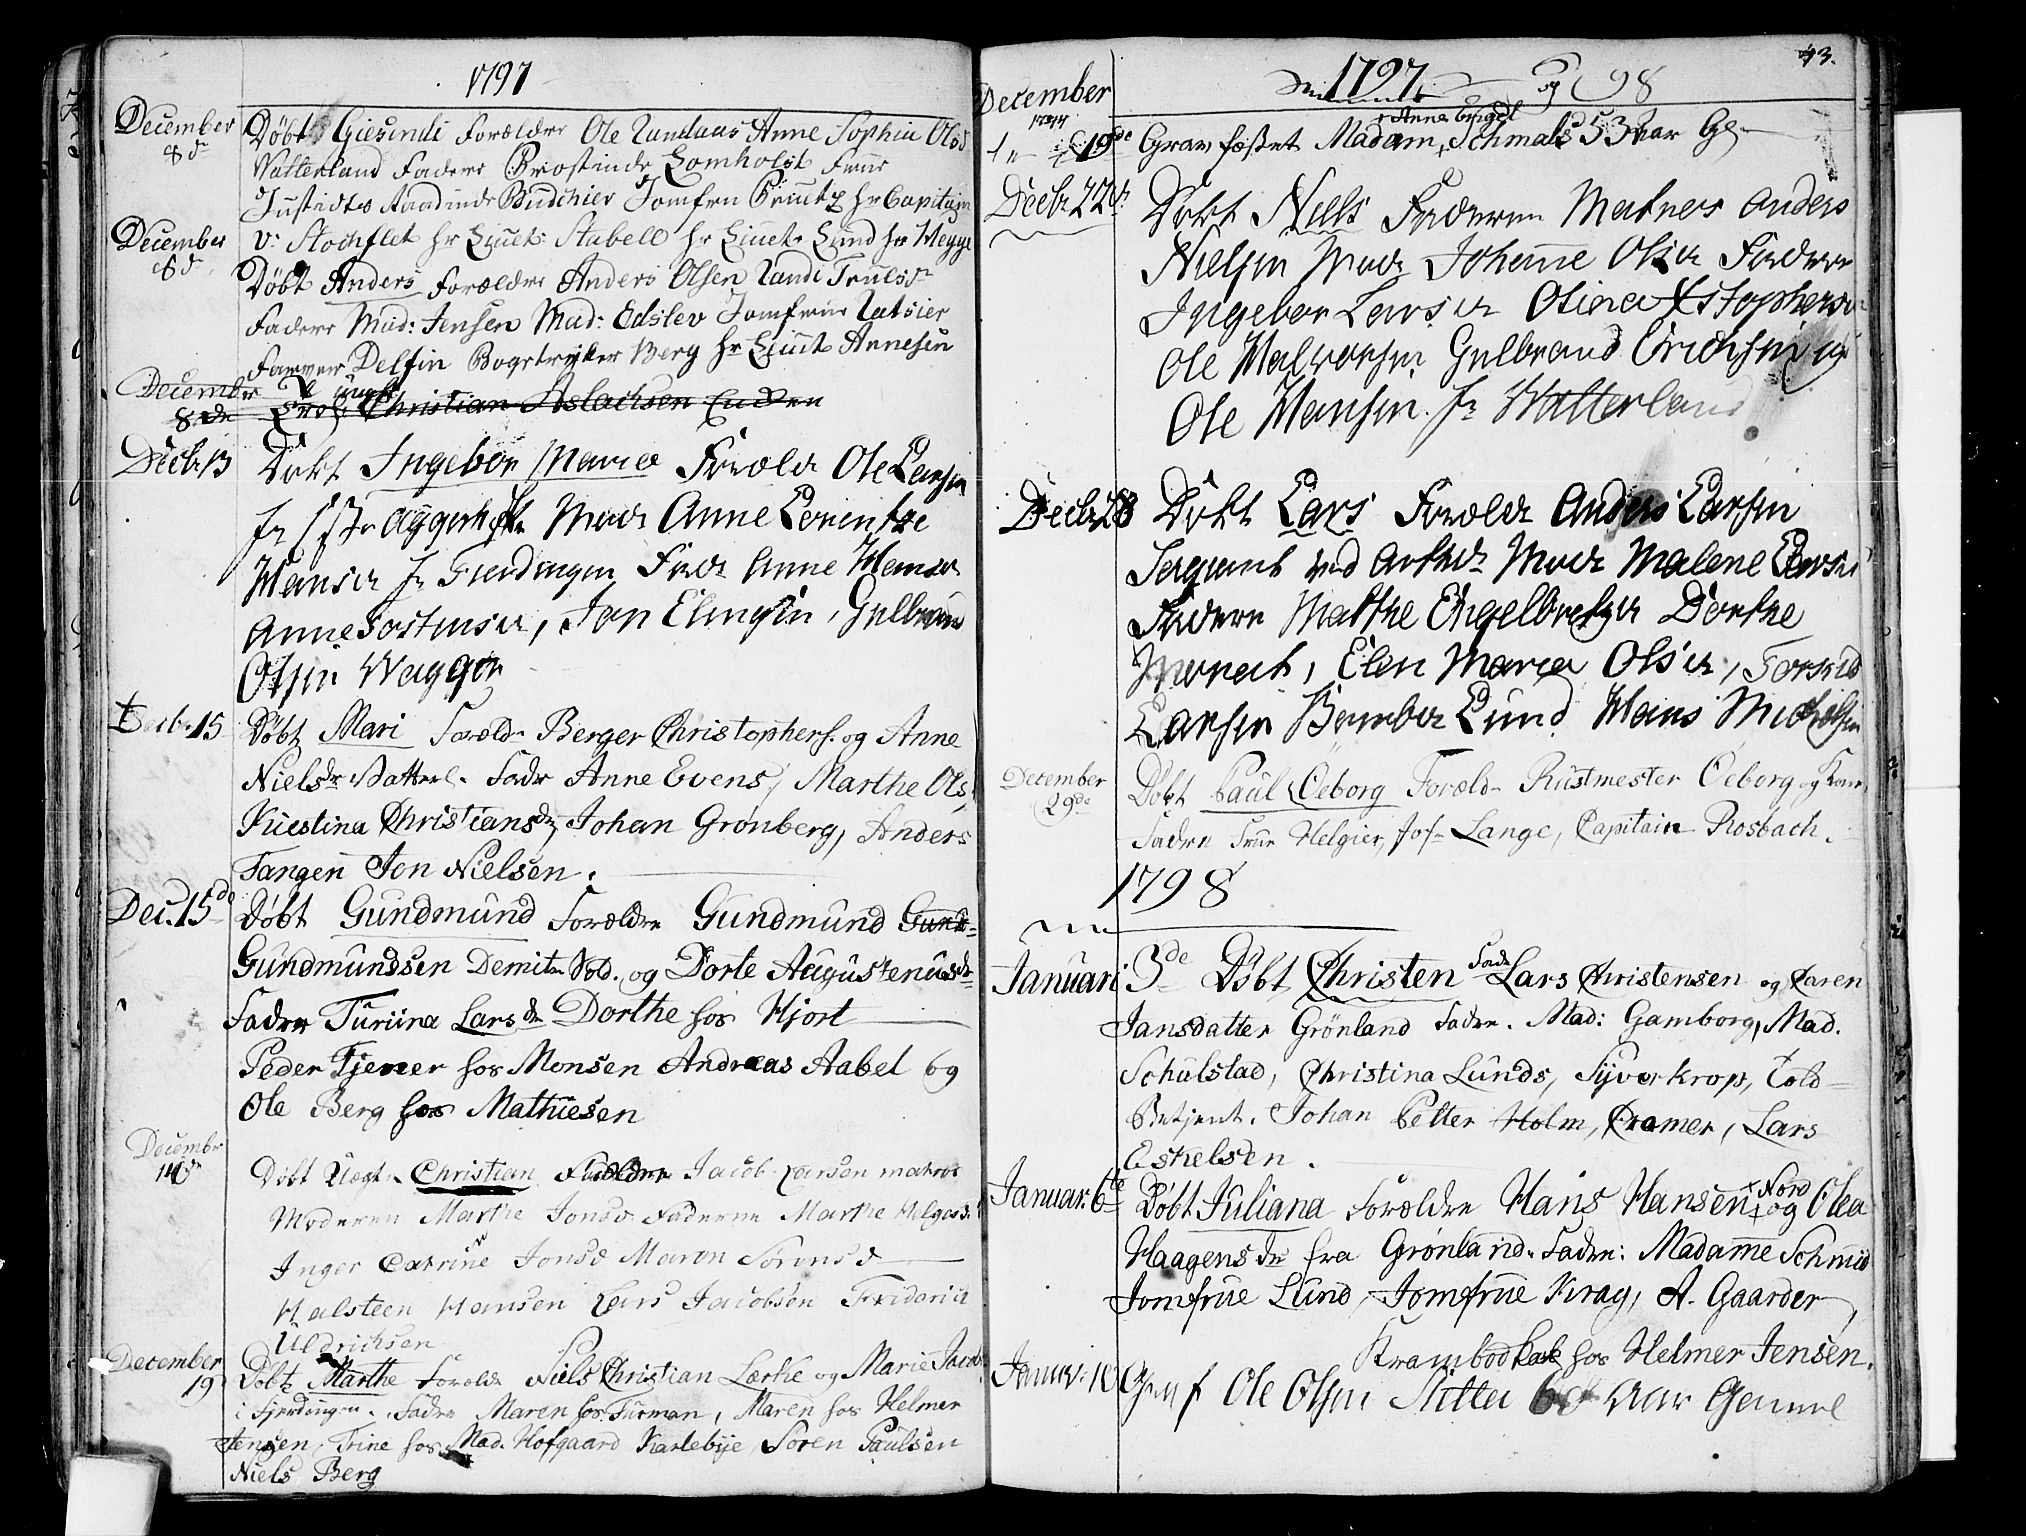 1797
December
8de
Døbt Giesindi Forældre Ole Randaas Anne Sophia Olsd
Vatterland Faddere Lomholst Frue
Justidts Raadinde Büdthier Jomfru hr Capitain
v: Stochflet hr Lieut: Stabell hr Lieut: Lund hr Wegge
December
8de
Døbt Anders Forældre Anders Olsen Randi Truelsdr
Fadere Mad: Jensen Mad: Edslev Jomfrue Ratsier
Farver Delfin Bogtryker Berg hr Lieut Annesen
December
8de Christian Aslachsen
Decbr 13
Døbt Ingebor Maria Foræld Ole Larsen
fr Aggerh Mod Anne Lorentze
Hansd fr Fierdingen Fad Anne Hansd
Anne Tostensd, Jon Elingsen, Gulbran
Olsen Waggor
Decbr 15
Døbt Mari Foræld Berger Christophers. og Anne
Nielsdr Vatterl. Fadr Anne Evens, Marthe Ols
Kiestina Christiansdr, Johan Grønberg, Anders
Tangen Jon Nielsen.
Dec. 15de
Døbt Gundmund Forældre Gundmund Gund-
Gundmundsen Demitr Sold. og Dorte Augustenusdr
Fadre Turiina Larsdr Dorthe hos Hjort
Peder Tjener hos Monsen Andreas Aabel og
Ole Berg hos Mathiesen
December
14de
Døbt Uægte Christian Forældre Jacob Larsen matros
Moderen Marthe Jonsd. Faderne Marthe Helgesd
Inger Catrine Jonsd Maren Sørensd
Halsteen Hansen Lars Jacobsen Friderich
Uldrichsen
December
19
Døbt Marthe Forældr Niels Christian Lærke og Marie Jacobs
i Fjerdingen. Fadre Maren hos Furman, Maren hos Helmer
Jensen, Trine hos Mad. Hofgaard Karlebye, Søren Paulsen
Niels Berg
43.
December
1797 og 98
19de Gravfæstet Madam Anna Birgel Schmals 53 aar Gl
Decbr 22d
Døbt Niels Faderen Matros Anders
Nielsen Mod Johanne Olsd Faddere
Ingebor Larsd Olinea Xstophersd
Ole Halvorsen Gulbrand Erichsen og
Ole Hansen fr Watterland
Decbr 28
Døbt Lars Foræld Anders Larsen
Sergiant ved Mod Malene Larsd
Fadere Malthe Engelbretzd Dorthe
Marack, Elen Maria Olsd, Torsrud
Larsen Lund Hans Michelsen
December
29de
Døbt Paul Oeborg Foræld Rustmester Oeborg og Kone
Fadre Frue Helgier, Jofr Lange, Capitain Rosbach.
1798
Januari 3de Døbt Christen Fadr Lars Christensen og Karen
Jansdatter Grönland Fadre. Mad: Gamborg, Mad.
Schulstad, Christina Lunds, Syver Krop, Told-
Betjent. Johan Petter Holm, Cramer, Lars
Eskelsen.
Januar. 6te Døbt Juliana Forældre Hans Hansen Nord og Olea
Haagensdr fra Grønland. Fadre: Madame Schmid
Jomfrue Lund, Jomfrue Krag, A. Gaarder,
Krambodkarl hos Helmer Jensen.
Januar. 10 Gravf Ole Olsen Sitter 60 aar Gammel